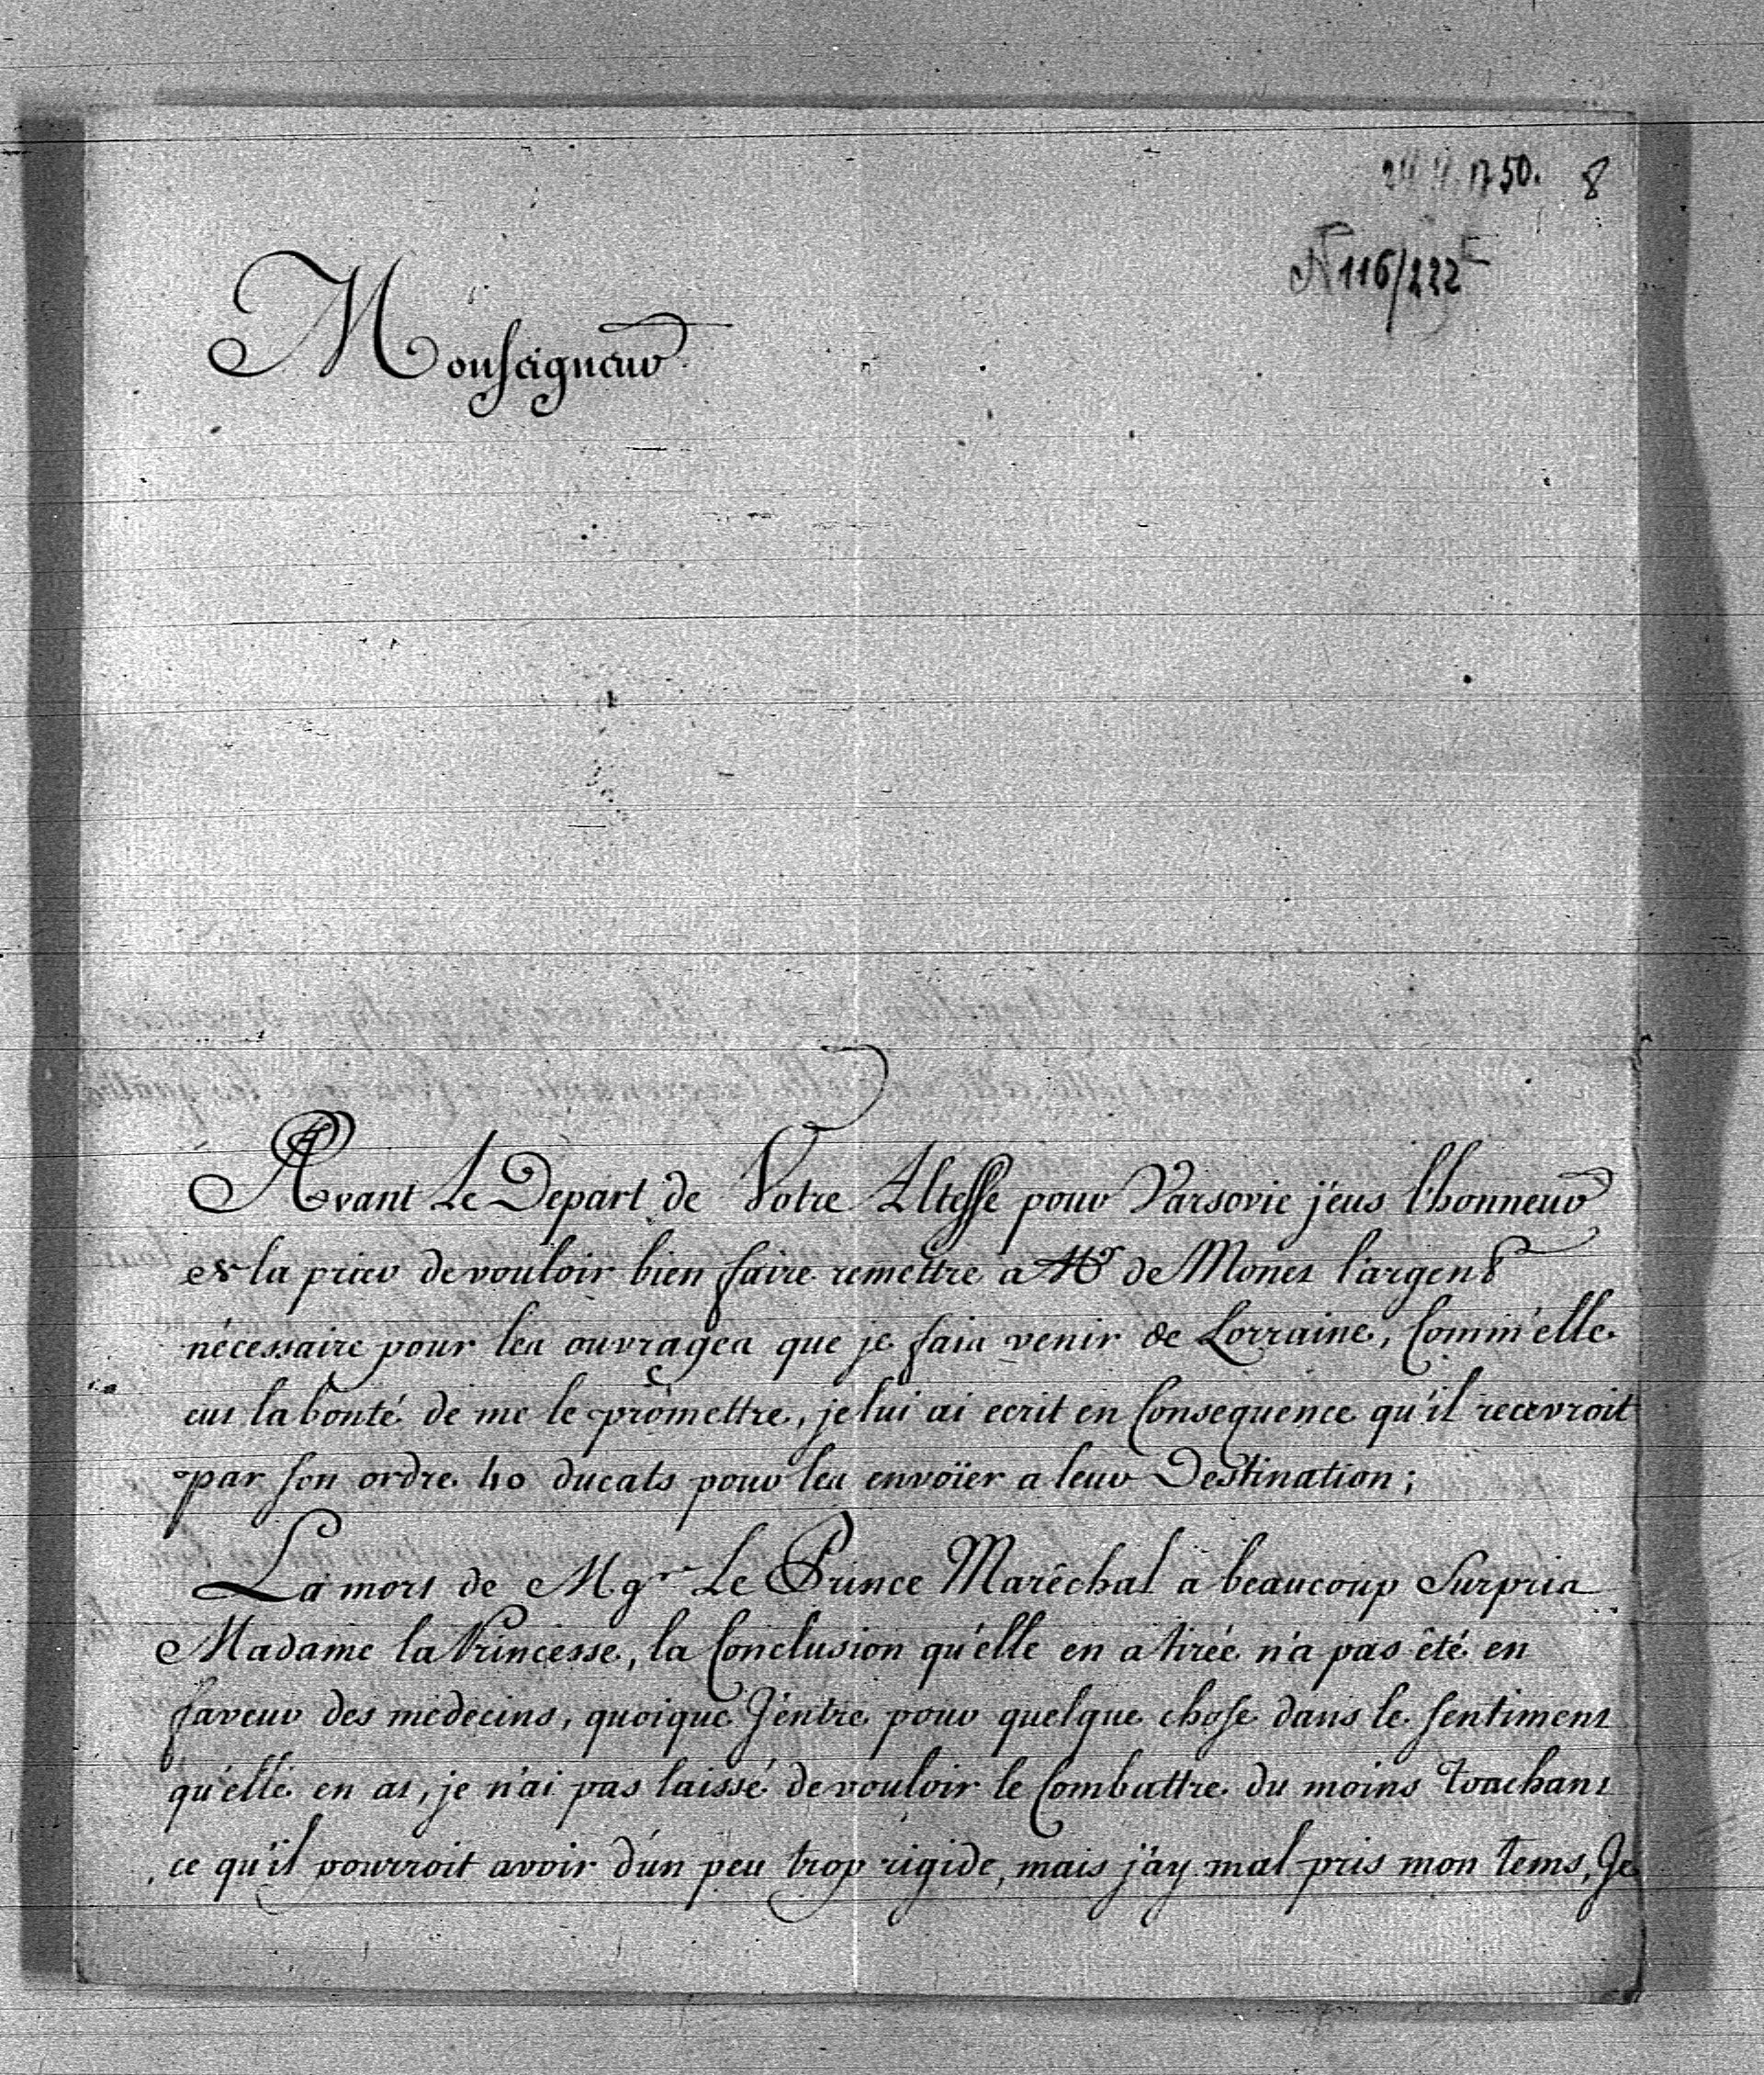 1750. 8
N 116/222
Monseigneur
Avant Le Depart de Votre Altesse pour Varsovie j'eus l'honneur
de la prier de vouloir bien faire remettre a Mr de Monet l'argent
nécessaire pour les ouvrages que je fais venir de Lorraine, Comm'elle
eut la bonté de me le promettre, je lui ai ecrit en Consequence qu'il recevroit
par son ordre 40 ducats pour les envoïer a leur Destination;
La mort de Mgr Le Prince Marêchal a beaucoup Surpris
Madame la Princesse, la Conclusion qu'elle en a tirée n'a pas êté en
faveur des medecins, quoique J'entre pour quelque chose dans le sentiment
qu'elle en at, je n'ai pas laissé de vouloir le Combattre du moins
ce qu'il pourroit avoir d'un peu trop rigide, mais j'ay mal pris mon tems, Je